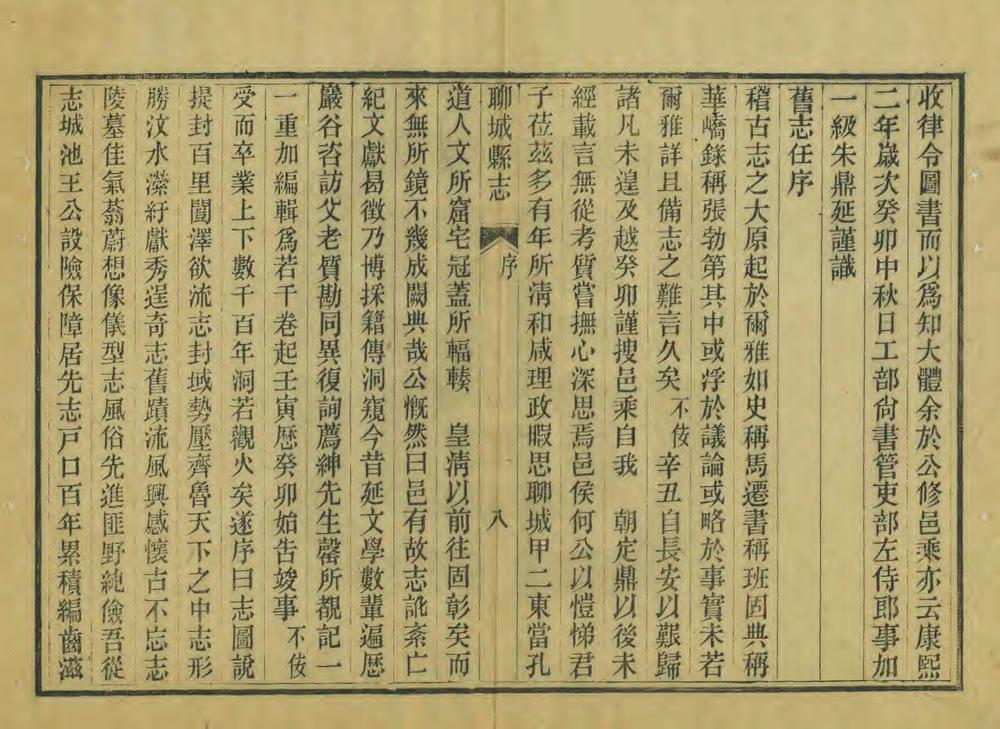 收律令圖書而以爲知大體余於公修邑乘亦云康熙
二年歲次癸卯中秋日工部尚書管吏部左侍郎事加
一級朱鼎延謹識
舊志任序
稽古志之大原起於爾雅如史稱馬遷書稱班固典稱
華嶠錄稱張勃第其中或浮於議論或略於事實未若
爾雅詳且備志之難言久矣不佞辛丑自長安以艱歸
諸凡未遑及越癸卯謹搜邑乘自我　朝定鼎以後未
經載言無從考質嘗撫心深思焉邑侯何公以愷悌君
子莅茲多有年所淸和咸理政暇思聊城甲二東當孔
聊城縣志　序　八
道人文所窟宅冠蓋所輻輳　皇淸以前往固彰矣而
來無所鏡不幾成闕典哉公慨然曰邑有故志訛紊亡
紀文獻曷徵乃博採籍傳洞窺今昔延文學數輩遍歷
巖谷咨訪父老質勘同異復詢薦紳先生罄所覩記一
一重加編輯爲若干卷起壬寅歷癸卯始告竣事不佞
受而卒業上下數千百年洞若觀火矣遂序曰志圖說
提封百里闓澤欲流志封域勢壓齊魯天下之中志形
勝汶水瀠紆獻秀逞奇志舊蹟流風興感懷古不忘志
陵墓佳氣蓊蔚想像儀型志風俗先進匪野純儉吾從
志城池王公設險保障居先志戸口百年累積編齒滋